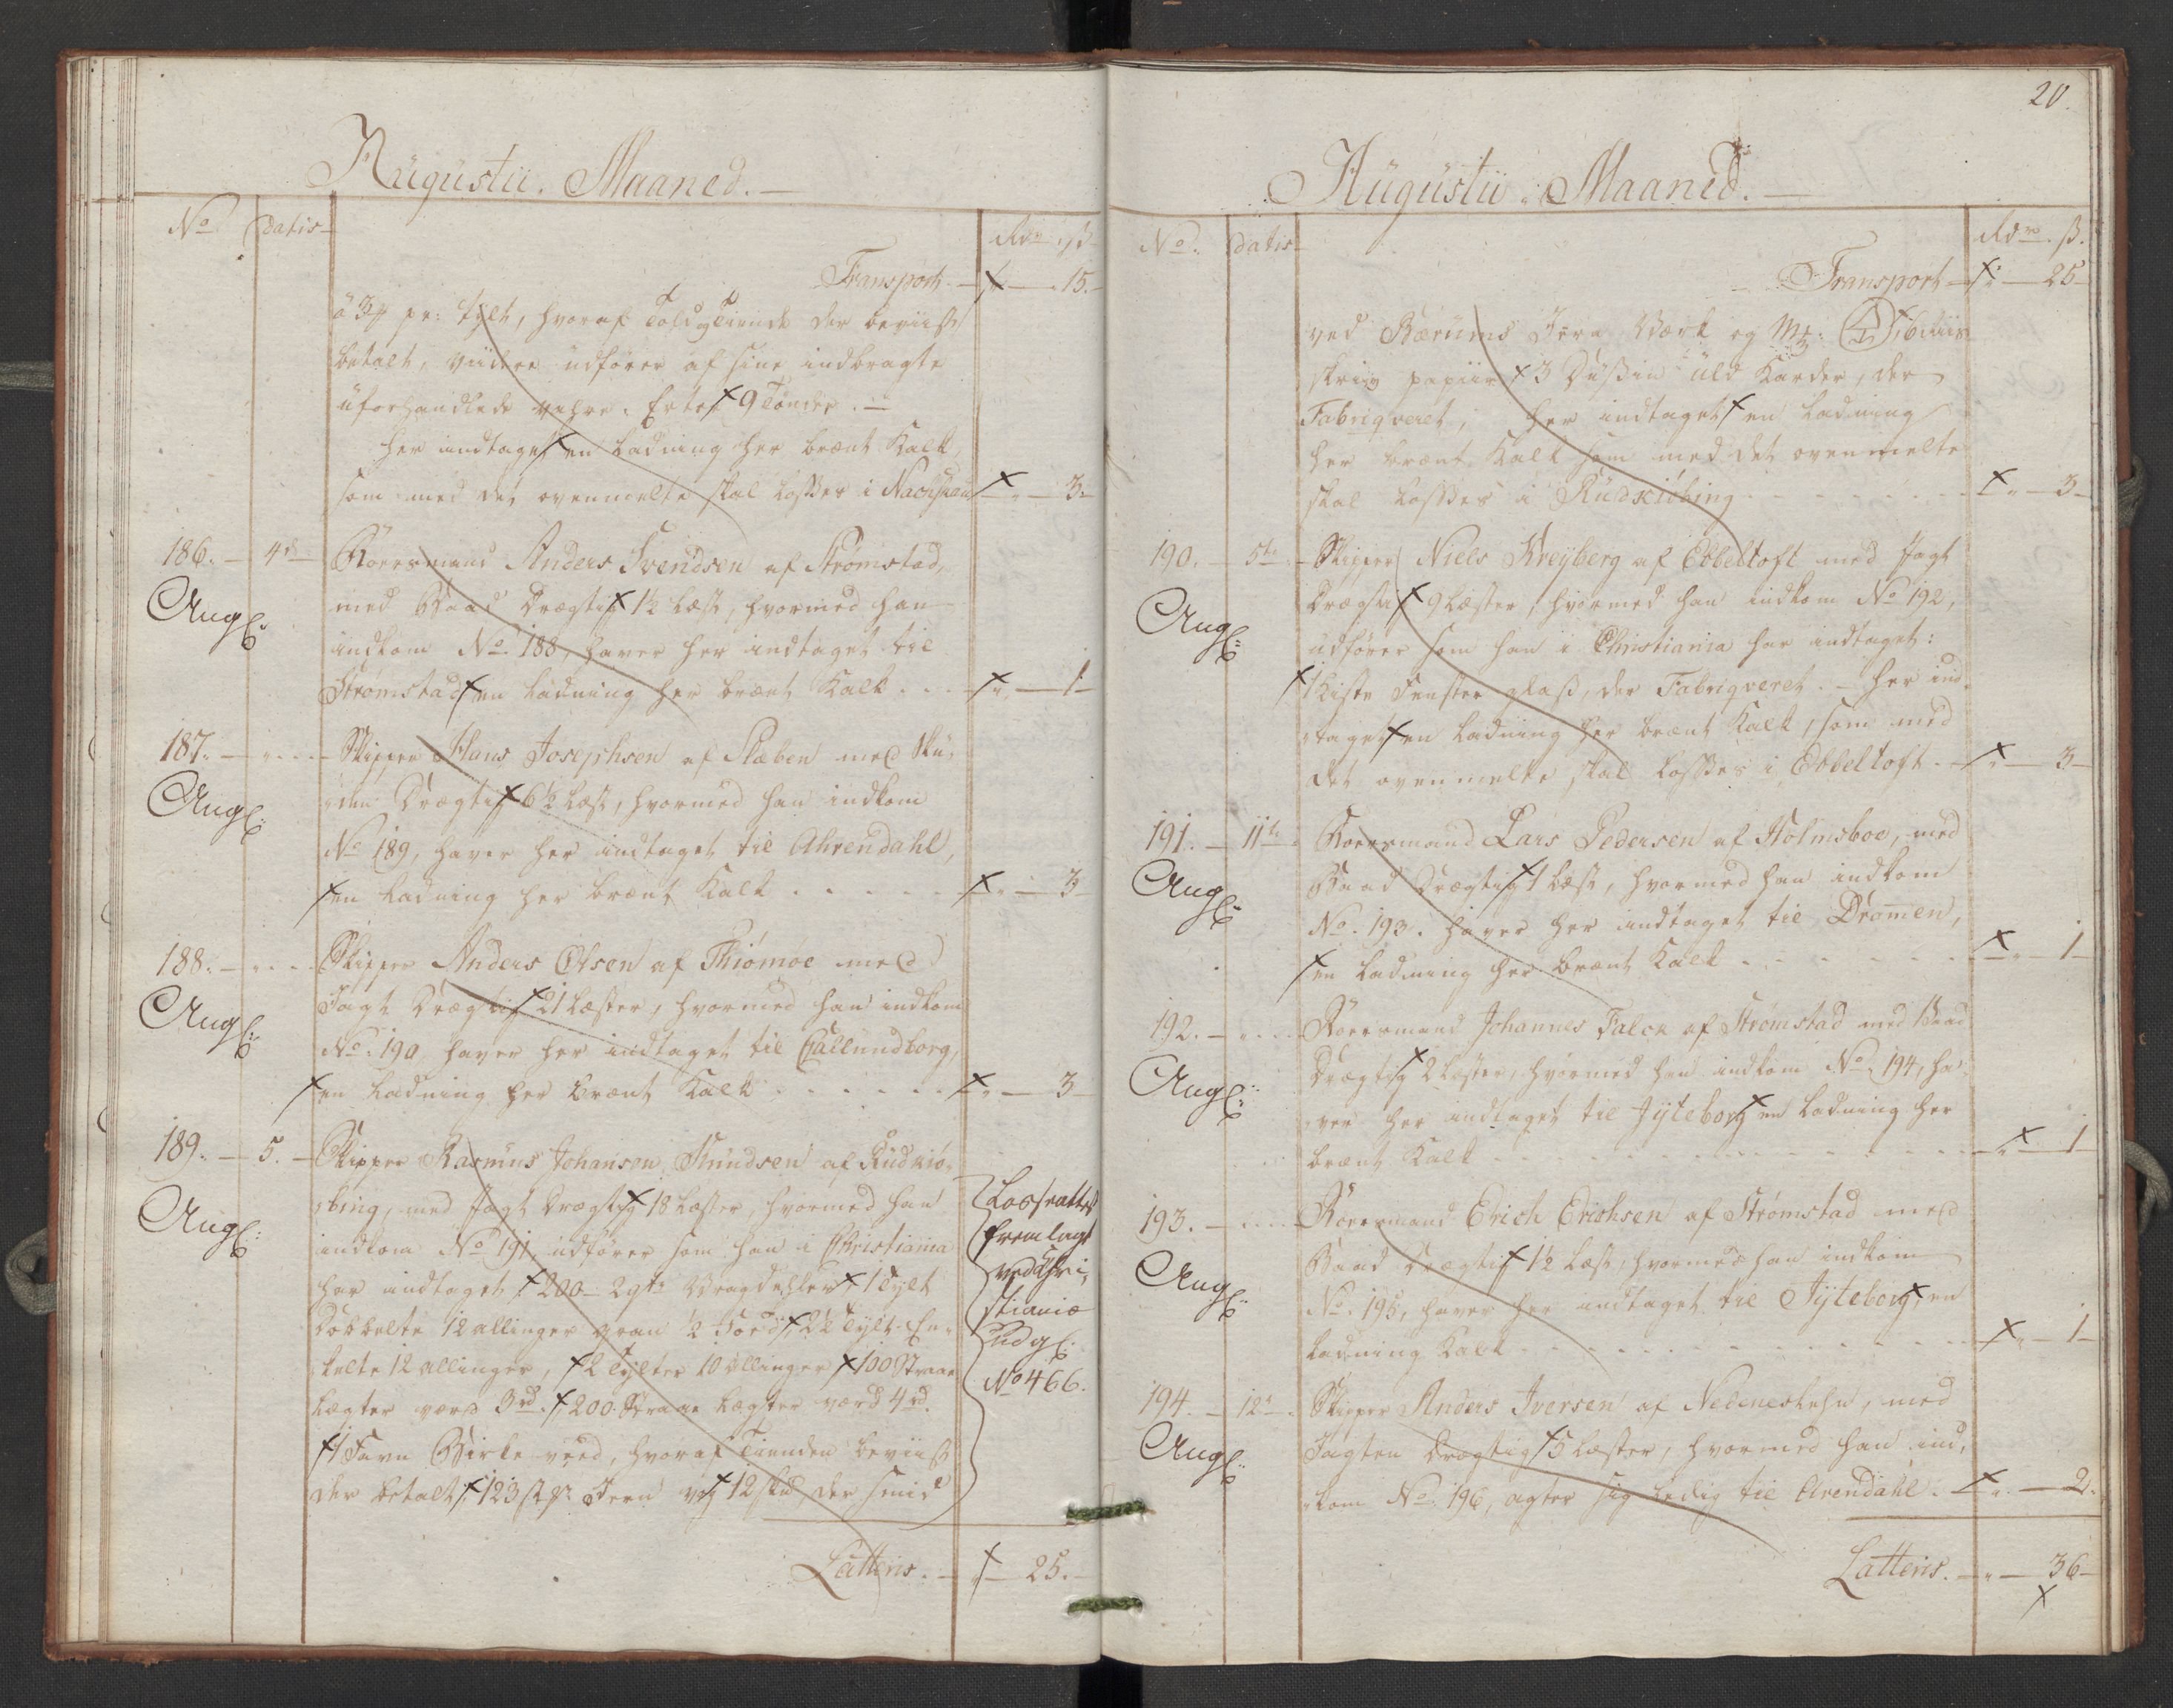 Augustii. Maaned.
No Datis Rdr ß
Transport - 15.
a 3 # pr: Tylt, hvoraf Told og Tiende der beviist
betalt, viidere udfører af sine indbragte
uforhandlede Vahre: Erter 9 Tønder.
her indtaget en Ladning her brænt Kalk,
som med det ovenmelte skal Losses i Nachschau - 3
186. 4de Roersmand Anders Svendsen af Strømstad,
med Baad Drægtig 1½ Læst, hvormed han
Ang:
indkom No. 188, haver her indtaget til
Strømstad en Ladning her brænt Kalk - 1
187. Skipper Hans Josephsen af Slæben med Sku-
den Drægtig 6½ Læst, hvormed han indkom
Ang:
No 189, haver her indtaget til Ahrendahl,
en Ladning her brænt Kalk - 3
188. Skipper Anders Olsen af Thiømøe med
Jagt Drægtig 21 Læster, hvormed han indkom
Ang:
No. 190 haver her indtaget til Callundborg,
en Ladning her brænt Kalk - 3
189. 5. Skipper Rasmus Johansen Knudsen af Rudkiø-
bing, med Jagt Drægtig 18 Læster, hvormed han
Ang:
indkom No 191, udfører som han i Christiania
har indtaget 200 - 2 qts Vragdehler 1 Tylt
Dobbelte 12 allinger gran ½ Toed 2½ Tylt En-
kelte 12 allinger, 2 Tylter 10 allinger 100 Straae
Lægter værd 3 rd. 200 Straae Lægter værd 4 rd.
1 Favn Birke veed, hvoraf Tienden beviist
der betalt, 123 st Jern 12 skd, der smid
Losseattest
fremlagt
ved Chri-
stiania
Udg:
No 466.
Latteris. - 25.
20.
Augustii Maaned.
No. Datis Rdr. ß.
Transport - 25
ved Bærums Jern Værk og
skriv papiir 3 Dußin Uld Karder, der
Fabriqveret, her indtaget en Ladning
her brænt Kalk som med det ovenmelte
skal Losses i Rudkiöbing - 3
190. 5te Skipper Niels Kreyberg af Ebbeltoft med Jagt
Drægtig 9 Læster, hvormed han indkom No 192,
Ang:
udfører som han i Christiania har indtaget:
1 Kiste Fenster glaß, der Fabriqveret. - her ind-
taget en Ladning her brænt Kalk, som med
det ovenmelte skal Losses i Ebbeltoft - 3
191. 11te Roersmand Lars Pedersen af Holmsboe, med
Baad Drægtig 1 Læst, hvormed han indkom
Ang:
No. 193. haver her indtaget til Dramen,
en Ladning her brænt Kalk - 1
192. Roersmand Johannes Falck af Strømstad med Baad
Drægtig 2 Læster, hvormed han indkom No. 194, ha-
Ang:
ver her indtaget til Jyteborg en Ladning her
brænt Kalk - 1
193. Roersmand Erich Erichsen af Strømstad med
Baad Drægtig 1½ Læst, hvormed han indkom
Ang:
No. 195, haver her indtaget til Jyteborg, en
Ladning Kalk - 1
194. 12te Skipper Anders Iversen af Nedeneslehn, med
Jagten Drægtig 5 Læster, hvormed han ind-
Ang:
kom No. 196, agter sig Ledig til Arendahl. - 2.
Latteris. - 36